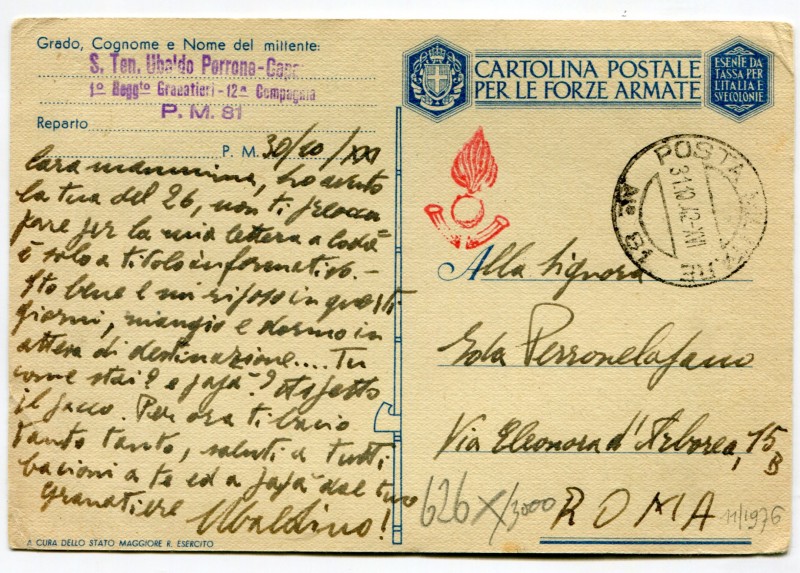 Grado, Cognome e Nome del mittente:
S. Ten. Ubaldo Perrone-Capa
1º Reggto Granatieri - 12ª Compagnia
P. M. 81
Reparto
P. M. 30/10/XXI
Cara mammina, ho avuto
la tua del 26, non ti preoccu
pare per la mia lettera a
è solo a titolo informativo. -
Sto bene e mi riposo in questi
giorni, mangio e dormo in
attesa di destinazione.... Tu
come stai? e papà? Aspetto
il pacco. Per ora ti bacio
tanto tanto, saluti a tutti
bacioni a te ed a papà dal tuo
granatiere Ubaldino!
A CURA DELLO STATO MAGGIORE R. ESERCITO
CARTOLINA POSTALE
PER LE FORZE ARMATE
ESENTE DA
TASSA PER
L'ITALIA E
SVE COLONIE
POSTA MILITARE
31.10.42-XXI
Nº 81
Alla Signora
Perrone Capano
Via Eleonora d'Arborea, 15
B
ROMA
626 X/3000
11/1976